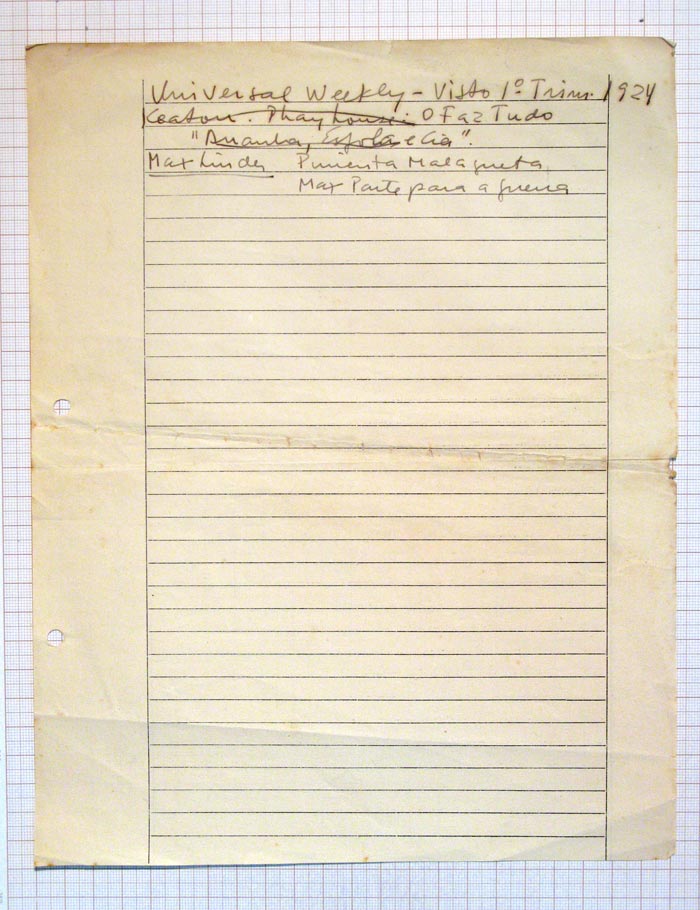 Universal Weekly - Visto 1º Trim. 1924
Keaton. Playhouse: O Faz Tudo
"Arranha, Esfola e Cia".
Max Linder Pimenta Malagueta
Max Parte para a guerra